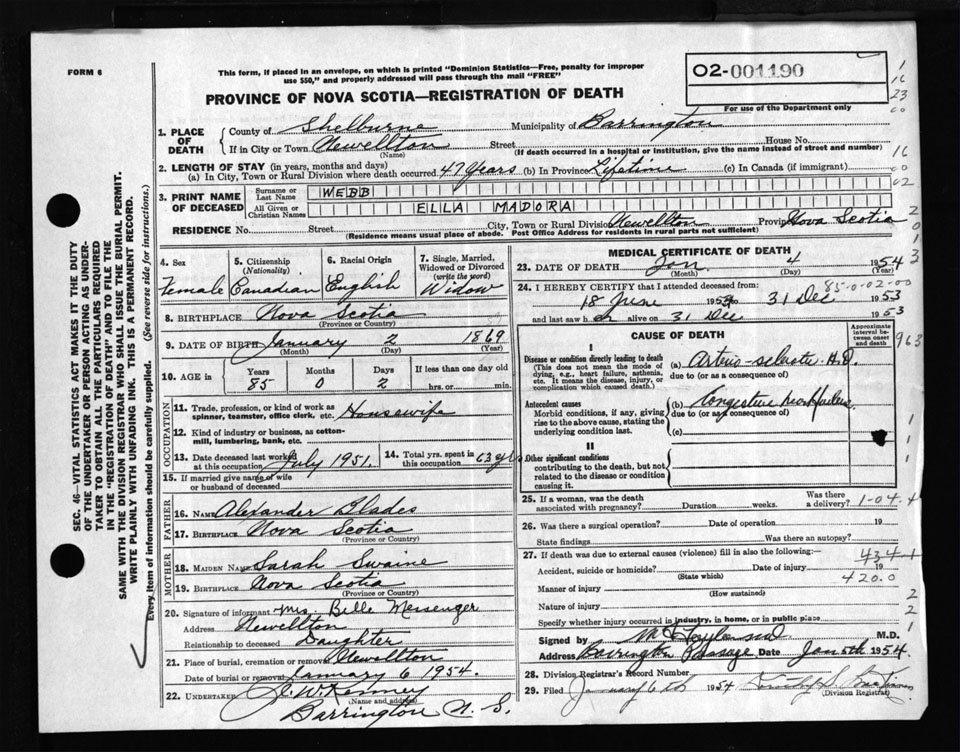 FORM 6
This form, if placed in an envelope, on which is printed "Dominion Statistics—Free, penalty for improper
use $50," and properly addressed will pass through the mail "FREE"
02-001190
For use of the Department only
PROVINCE OF NOVA SCOTIA—REGISTRATION OF DEATH
1. PLACE OF DEATH
County of Shelburne Municipality of Barrington
If in City or Town Newellton Street House No.
(Name) (If death occurred in a hospital or institution, give the name instead of street and number)
2. LENGTH OF STAY (in years, months and days)
(a) In City, Town or Rural Division where death occurred 47 Years (b) In Province Lifetime (c) In Canada (if immigrant)
3. PRINT NAME OF DECEASED
Surname or Last Name WEBB
All Given or Christian Names ELLA MADORA
RESIDENCE No. Street City, Town or Rural Division Newellton Province Nova Scotia
(Residence means usual place of abode. Post Office Address for residents in rural parts not sufficient)
4. Sex
Female
5. Citizenship
(Nationality)
Canadian
6. Racial Origin
English
7. Single, Married,
Widowed or Divorced
(write the word)
Widow
8. BIRTHPLACE Nova Scotia
(Province or Country)
9. DATE OF BIRTH January 2 1869
(Month) (Day) (Year)
10. AGE in
Years Months Days If less than one day old
85 0 2 hrs. or min.
OCCUPATION
11. Trade, profession, or kind of work as
spinner, teamster, office clerk, etc. Housewife
12. Kind of industry or business, as cotton-
mill, lumbering, bank, etc.
13. Date deceased last worked
at this occupation July 1951.
14. Total yrs. spent in
this occupation 63 yrs
15. If married give name of wife
or husband of deceased
FATHER
16. NAME Alexander Blades
17. BIRTHPLACE Nova Scotia
(Province or Country)
MOTHER
18. MAIDEN NAME Sarah Swaine
19. BIRTHPLACE Nova Scotia
(Province or Country)
20. Signature of informant Mrs. Belle Messenger
Address Newellton
Relationship to deceased Daughter
21. Place of burial, cremation or removal Newellton
Date of burial or removal January 6 1954.
22. UNDERTAKER J. W. Kenney
(Name and address)
Barrington N. S.
MEDICAL CERTIFICATE OF DEATH
23. DATE OF DEATH Jan 4 1954
(Month) (Day) (Year)
24. I HEREBY CERTIFY that I attended deceased from: 85-0-02-00
18 June 1953 31 Dec 1953
and last saw her alive on 31 Dec 1953
CAUSE OF DEATH
Approximate interval between onset and death
I
Disease or condition directly leading to death
(This does not mean the mode of
dying, e.g., heart failure, asthenia,
etc. It means the disease, injury, or
complication which caused death.)
(a) H.D.
due to (or as consequence of)
Antecedent causes
Morbid conditions, if any, giving
rise to the above cause, stating the
underlying condition last.
(b) Congestive
due to (or as consequence of)
(c)
II
Other significant conditions
contributing to the death, but not
related to the disease or condition
causing it.
25. If a woman, was the death
associated with pregnancy? Duration weeks. Was there a delivery? 1-04-4
26. Was there a surgical operation? Date of operation 19
State findings Was there an autopsy?
27. If death was due to external causes (violence) fill in also the following:—
Accident, suicide or homicide? Date of injury 19
(State which)
434-1
420.0
Manner of injury
(How sustained)
Nature of injury
Specify whether injury occurred in industry, in home, or in public place
Signed by M.D.
Address Barrington Passage Date Jan 5th 1954.
28. Division Registrar's Record Number
29. Filed January 6th 1954
(Division Registrar)
SEC. 46—VITAL STATISTICS ACT MAKES IT THE DUTY
OF THE UNDERTAKER OR PERSON ACTING AS UNDER-
TAKER TO OBTAIN ALL THE PARTICULARS REQUIRED
IN THE "REGISTRATION OF DEATH" AND TO FILE THE
SAME WITH THE DIVISION REGISTRAR WHO SHALL ISSUE THE BURIAL PERMIT.
WRITE PLAINLY WITH UNFADING INK. THIS IS A PERMANENT RECORD.
Every item of information should be carefully supplied. (See reverse side for instructions.)